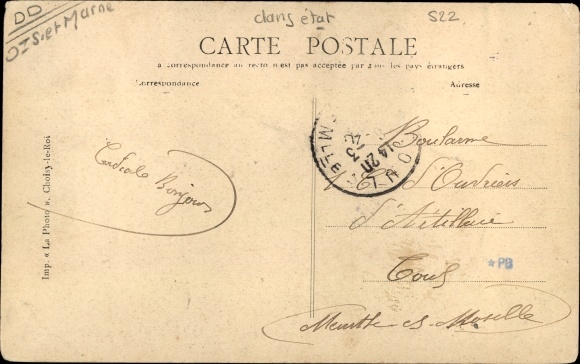 DD
Oise et Marne
dans état
S22
CARTE POSTALE
a correspondance au recto n'est pas acceptée par tous les pays étrangers
Correspondance
Adresse
Imp. « La Photo », Choisy-le-Roi
Cordiale Bonjour
Boularme
d'Ouvriers
d'Artillerie
Toul
*PB
Meurthe-et-Moselle